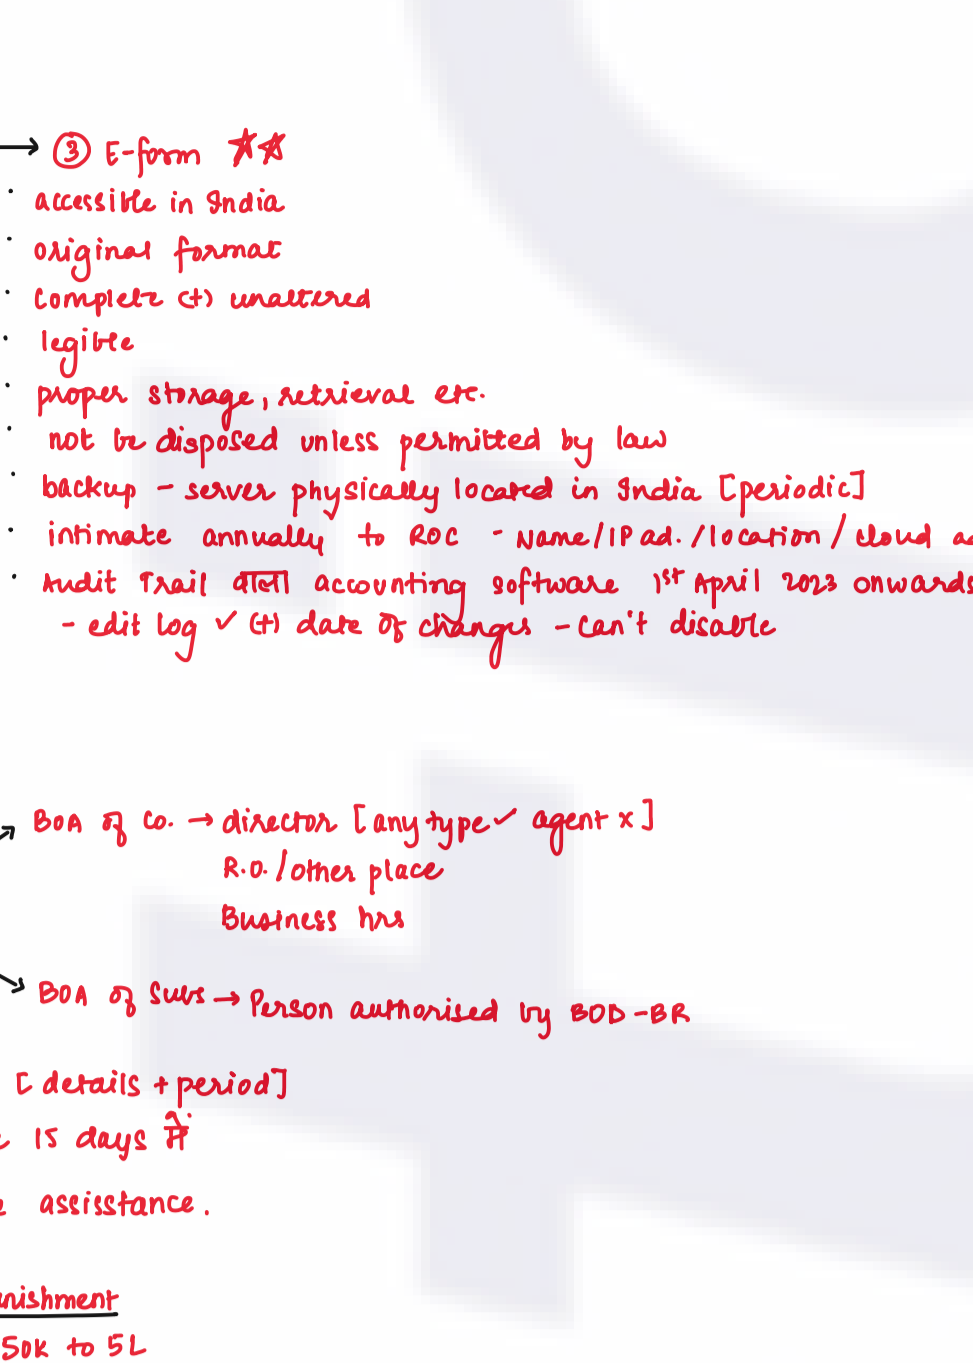 → ③ E-form ☆☆
· accessible in India
· original format
· complete (+) unaltered
· legible
· proper storage, retrieval etc.
· not be disposed unless permitted by law
· backup - server physically located in India [periodic]
· intimate annually to ROC - Name/IP ad./location/cloud
· Audit Trail वाला accounting software 1st April 2023 onwards
- edit log ✓ (+) date of changes - can't disable
BOA of Co. → director [any type ✓ agent x]
R.O./other place
Business hrs
BOA of Subs → Person authorised by BOD-BR
[details + period]
15 days में
assisstance.
nishment
50K to 5L